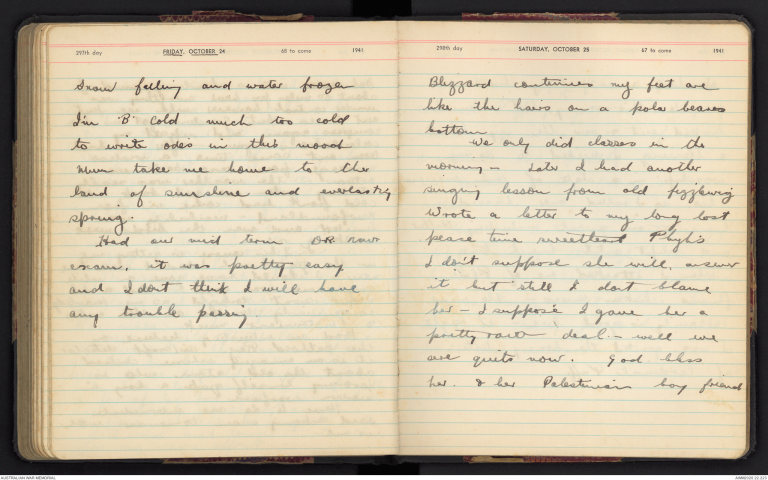 297th day FRIDAY, OCTOBER 24 68 to come 1941
Snow falling and water frozen
I'm "B" cold much too cold
to write odes in this mood
Mum take me home to the
land of sunshine and everlasting
spring.
Had our mid term DR nav
exam, it was pretty easy
and I dont think I will have
any trouble passing.
298th day SATURDAY, OCTOBER 25 67 to come 1941
Blizzard continues my feet are
like the hairs on a polar beares
bottom
We only did classes in the
morning – Later I had another
singing lesson from old fizzkwig
Wrote a letter to my long lost
peace time sweetheart Phyl's
I don't suppose she will answer
it but still I dont blame
her – I suppose I gave her a
pretty raw deal – well we
are quits now. God bless
her. & her Palestinian boy friend
AUSTRALIAN WAR MEMORIAL
AWM2020.22.223